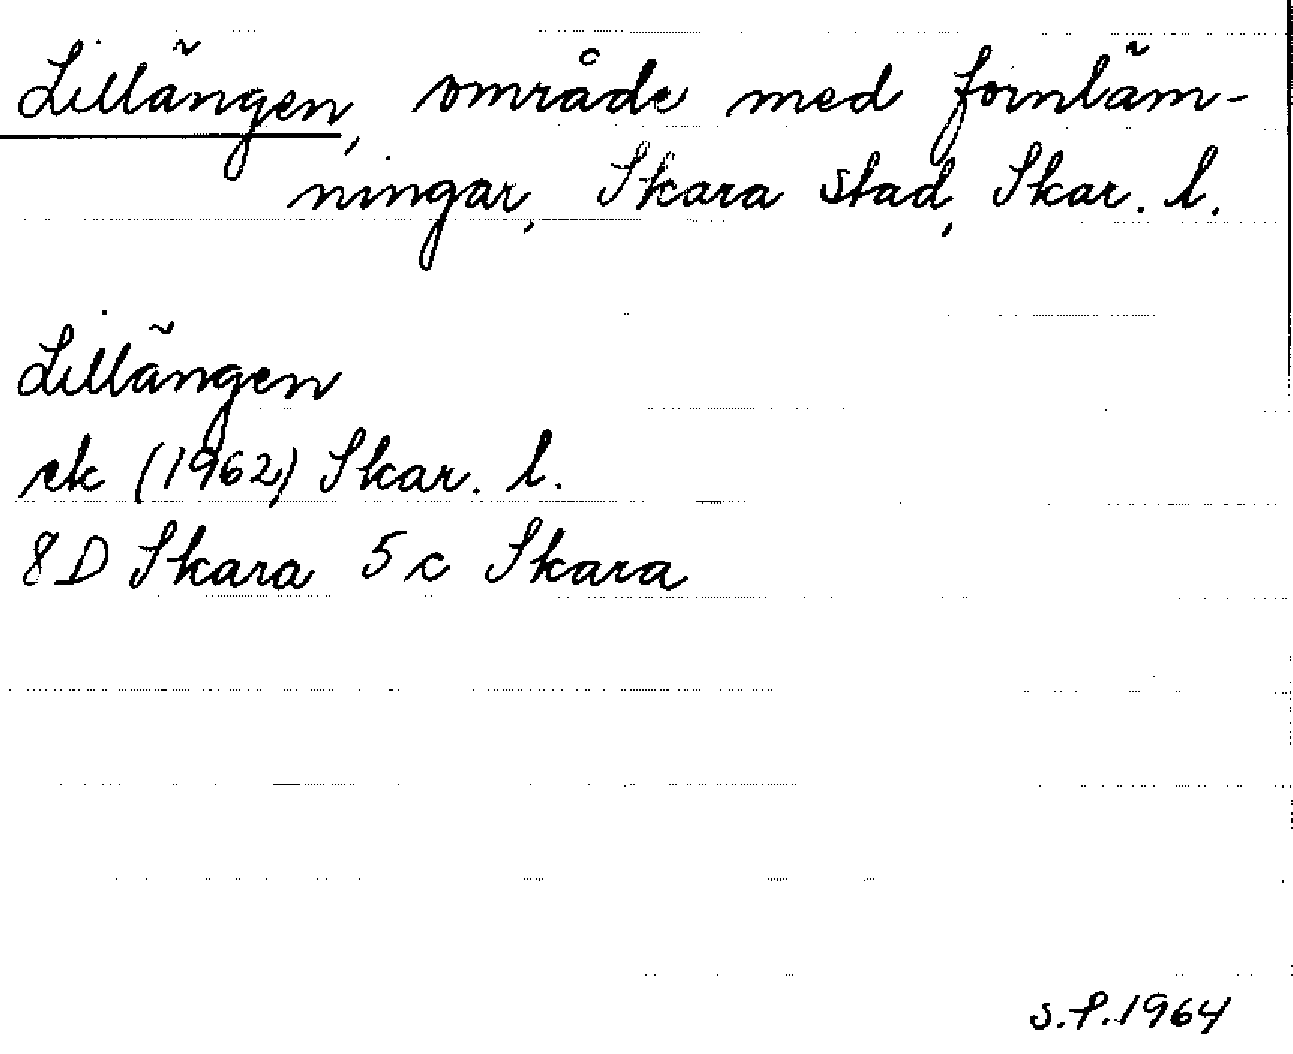 Lillängen, område med fornläm-
ningar, Skara stad, Skar. l.
Lillängen
ek (1962) Skar. l.
8D Skara 5c Skara
S.F. 1964